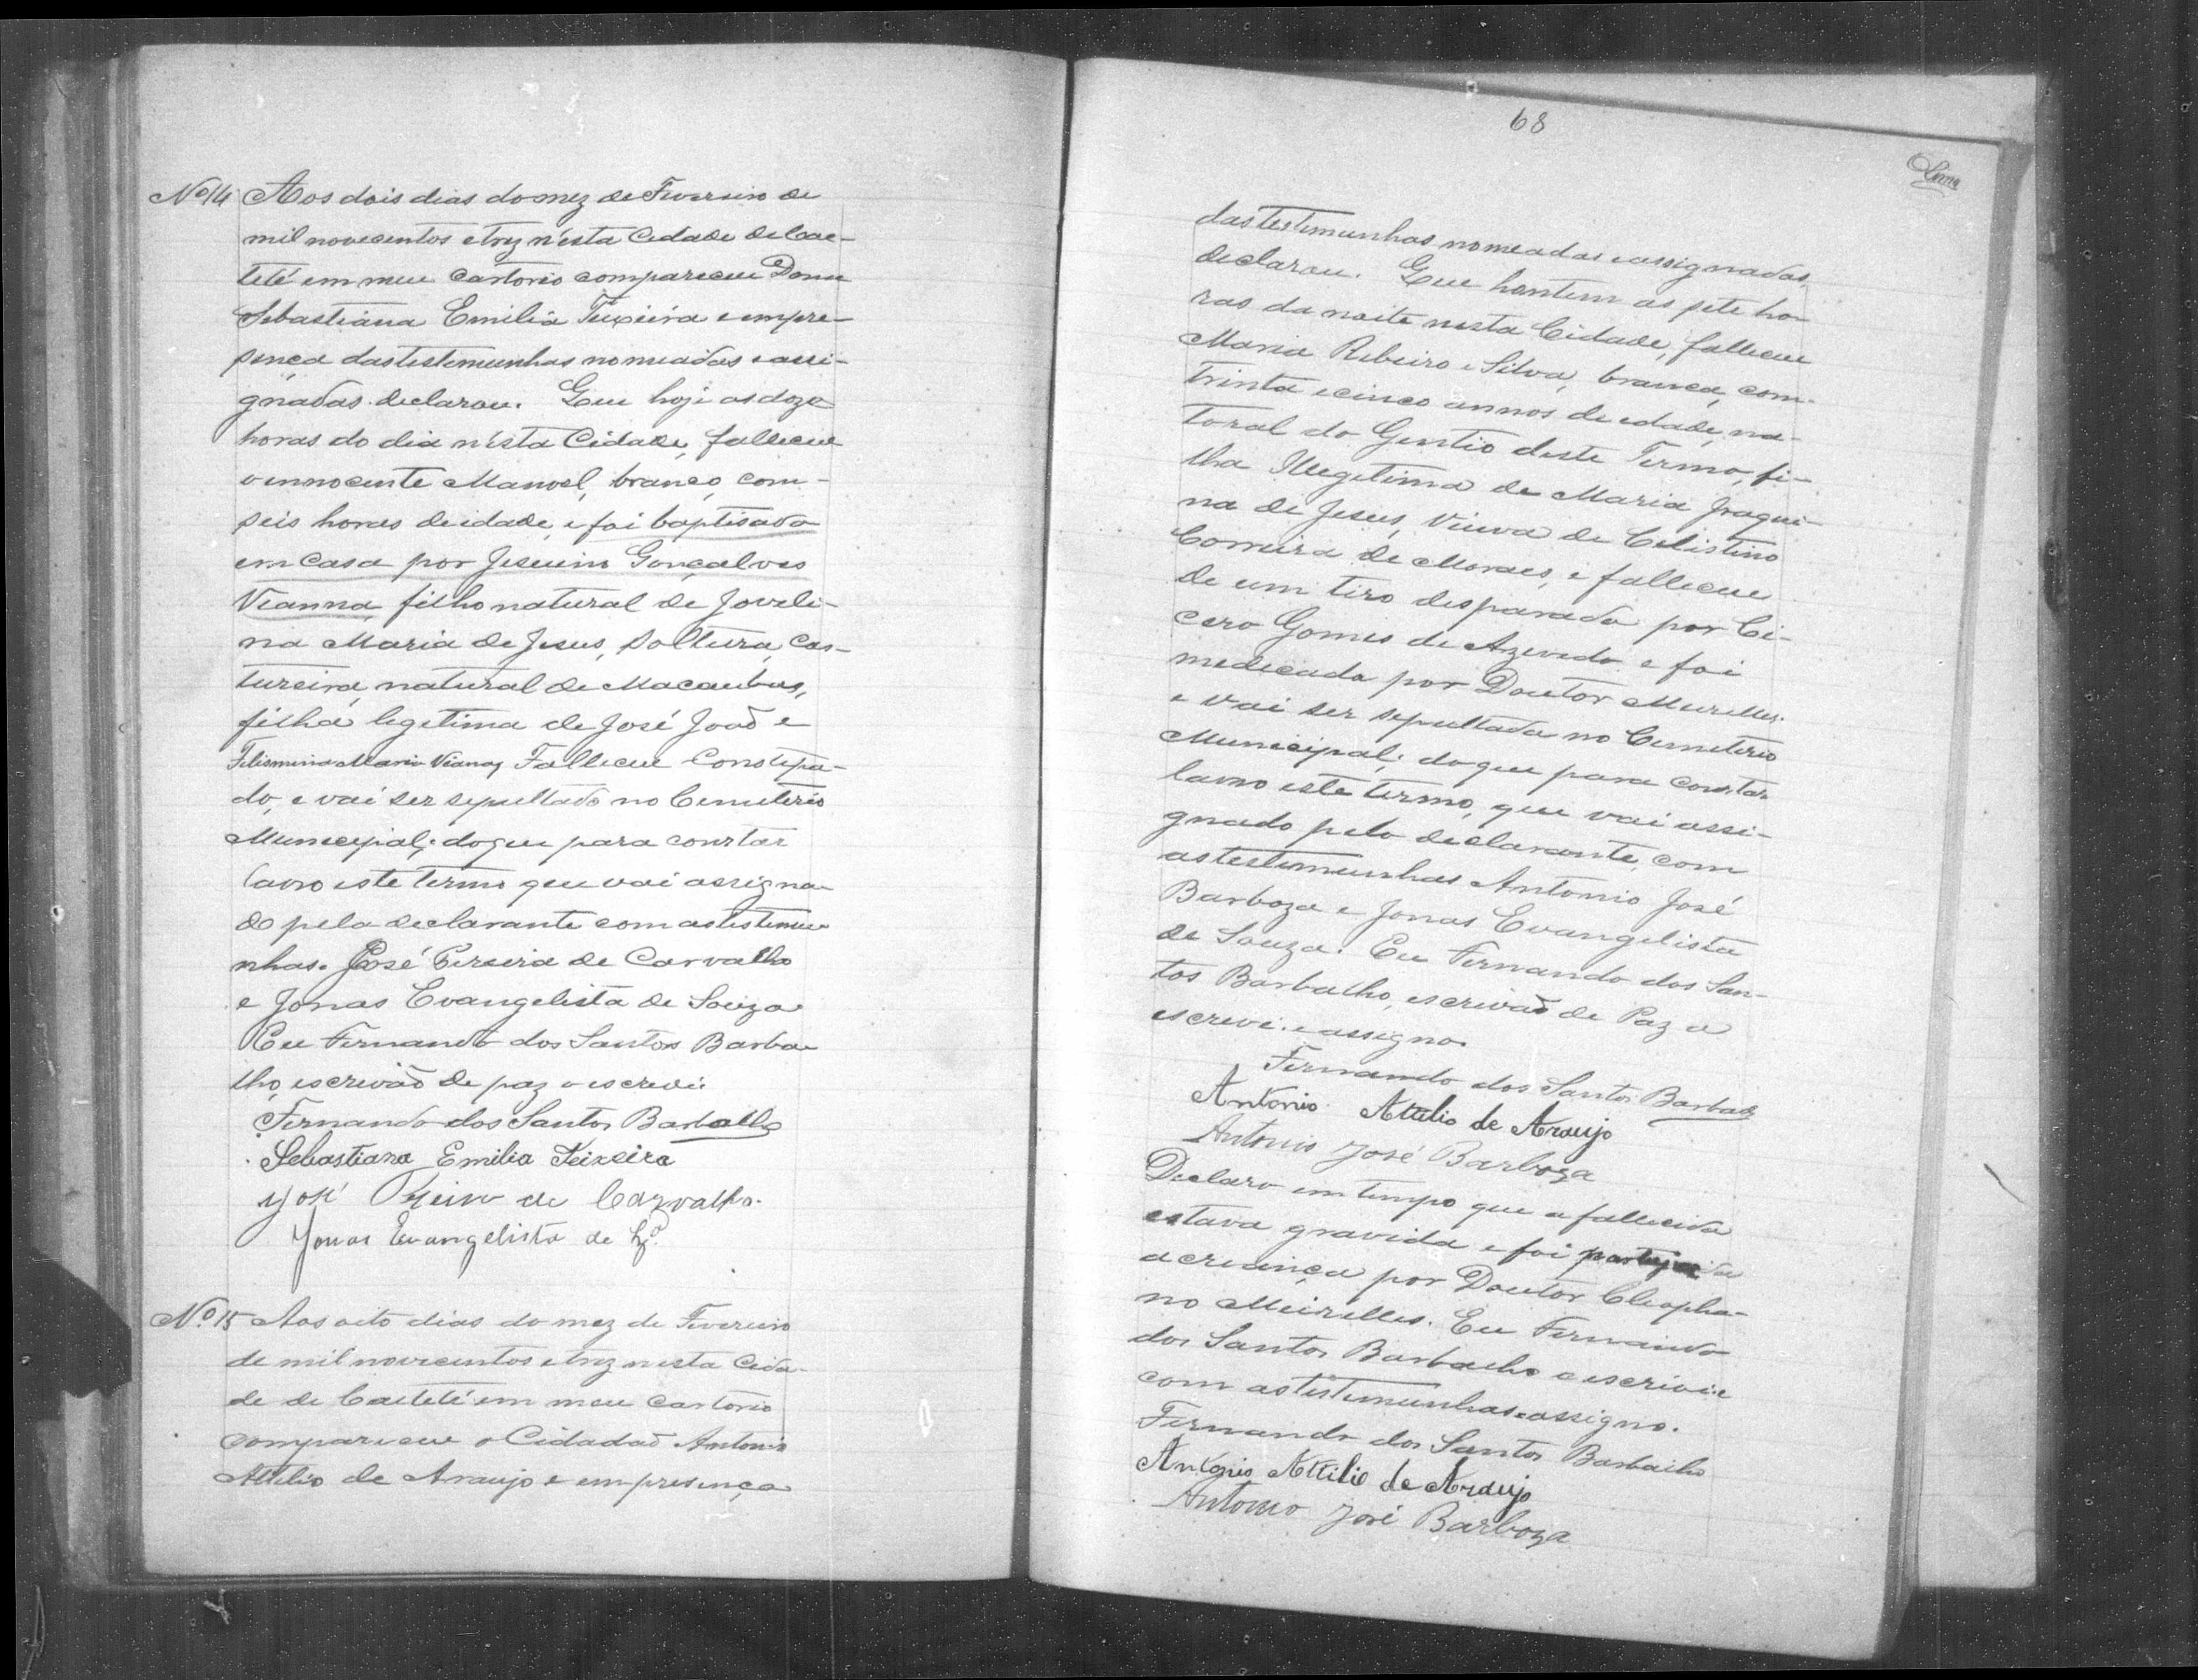 Nº 14 Aos dois dias do mez de Fevereiro de
mil novecentos e trez n'esta Cidade de Cae-
teté em meu Cartorio compareceu Dona
Sebastiana Emilia Teixeira e em pre-
sença das testemunhas nomeadas e assi-
gnadas declarou. Que hoje as doze
horas do dia n'esta Cidade, falleceu
o innocente Manoel, branco, com
seis horas de idade, e foi baptisado
em casa por Jesuino Gonçalves
Vianna, filho natural de Joveli-
na Maria de Jesus, solteira, cos-
tureira, natural de Macaubas,
filha legitima de José João e
Felismina Maria Vianna, Falleceu Constipa-
do, e vai ser sepultado no Cemiterio
Municipal, do que para constar
lavro este termo que vai assigna-
do pela declarante com as testemu-
nhas. José Pereira de Carvalho
e Jonas Evangelista de Souza
Eu Fernando dos Santos Barba-
lho, escrivão de paz o escrevi.
Fernando dos Santos Barbalho
Sebastiana Emilia Teixeira
José Pereira de Carvalho.
Jonas Evangelista de Sz.ª
Nº 15 Aos oito dias do mez de Fevereiro
de mil novecentos e trez nesta Cida-
de de Caeteté em meu Cartorio
compareceu o Cidadaõ Antonio
Attilio de Araujo e em presença
68
Lima
das testemunhas nomeadas e assignadas,
declarou. Que hontem as sete ho-
ras da noite nesta Cidade, falleceu
Maria Ribeiro e Silva, branca, com
trinta e cinco annos de edade, na-
toral do Gentio deste Termo, fi-
lha Illegitima de Maria Joaqui-
na de Jesus, Viuva de Celistino
Correira de Moraes, e falleceu
de um tiro desparado por Ci-
cero Gomes de Azevedo e foi
medecada por Doutor Meirelles.
e vai ser sepultada no Cemiterio
Municipal; do que para constar
lavro este termo, que vai assi-
gnado pelo declarante, com
as testemunhas Antonio José
Barboza e Jonas Evangelista
de Souza. Eu Fernando dos San-
tos Barbalho, escrivaõ de Paz o
escrevi. e assigno.
Fernando dos Santos Barbalho
Antonio Attilio de Araujo
Antonio José Barboza
Declaro em tempo que a fallecida
estava gravida e foi partejada
a creança por Doutor Cleopha-
no Meirelles. Eu Fernando
dos Santos Barbalho o escrivi. e
com as testemunhas assigno.
Fernando dos Santos Barbalho
Antonio Attilio de Araujo
Antonio José Barboza